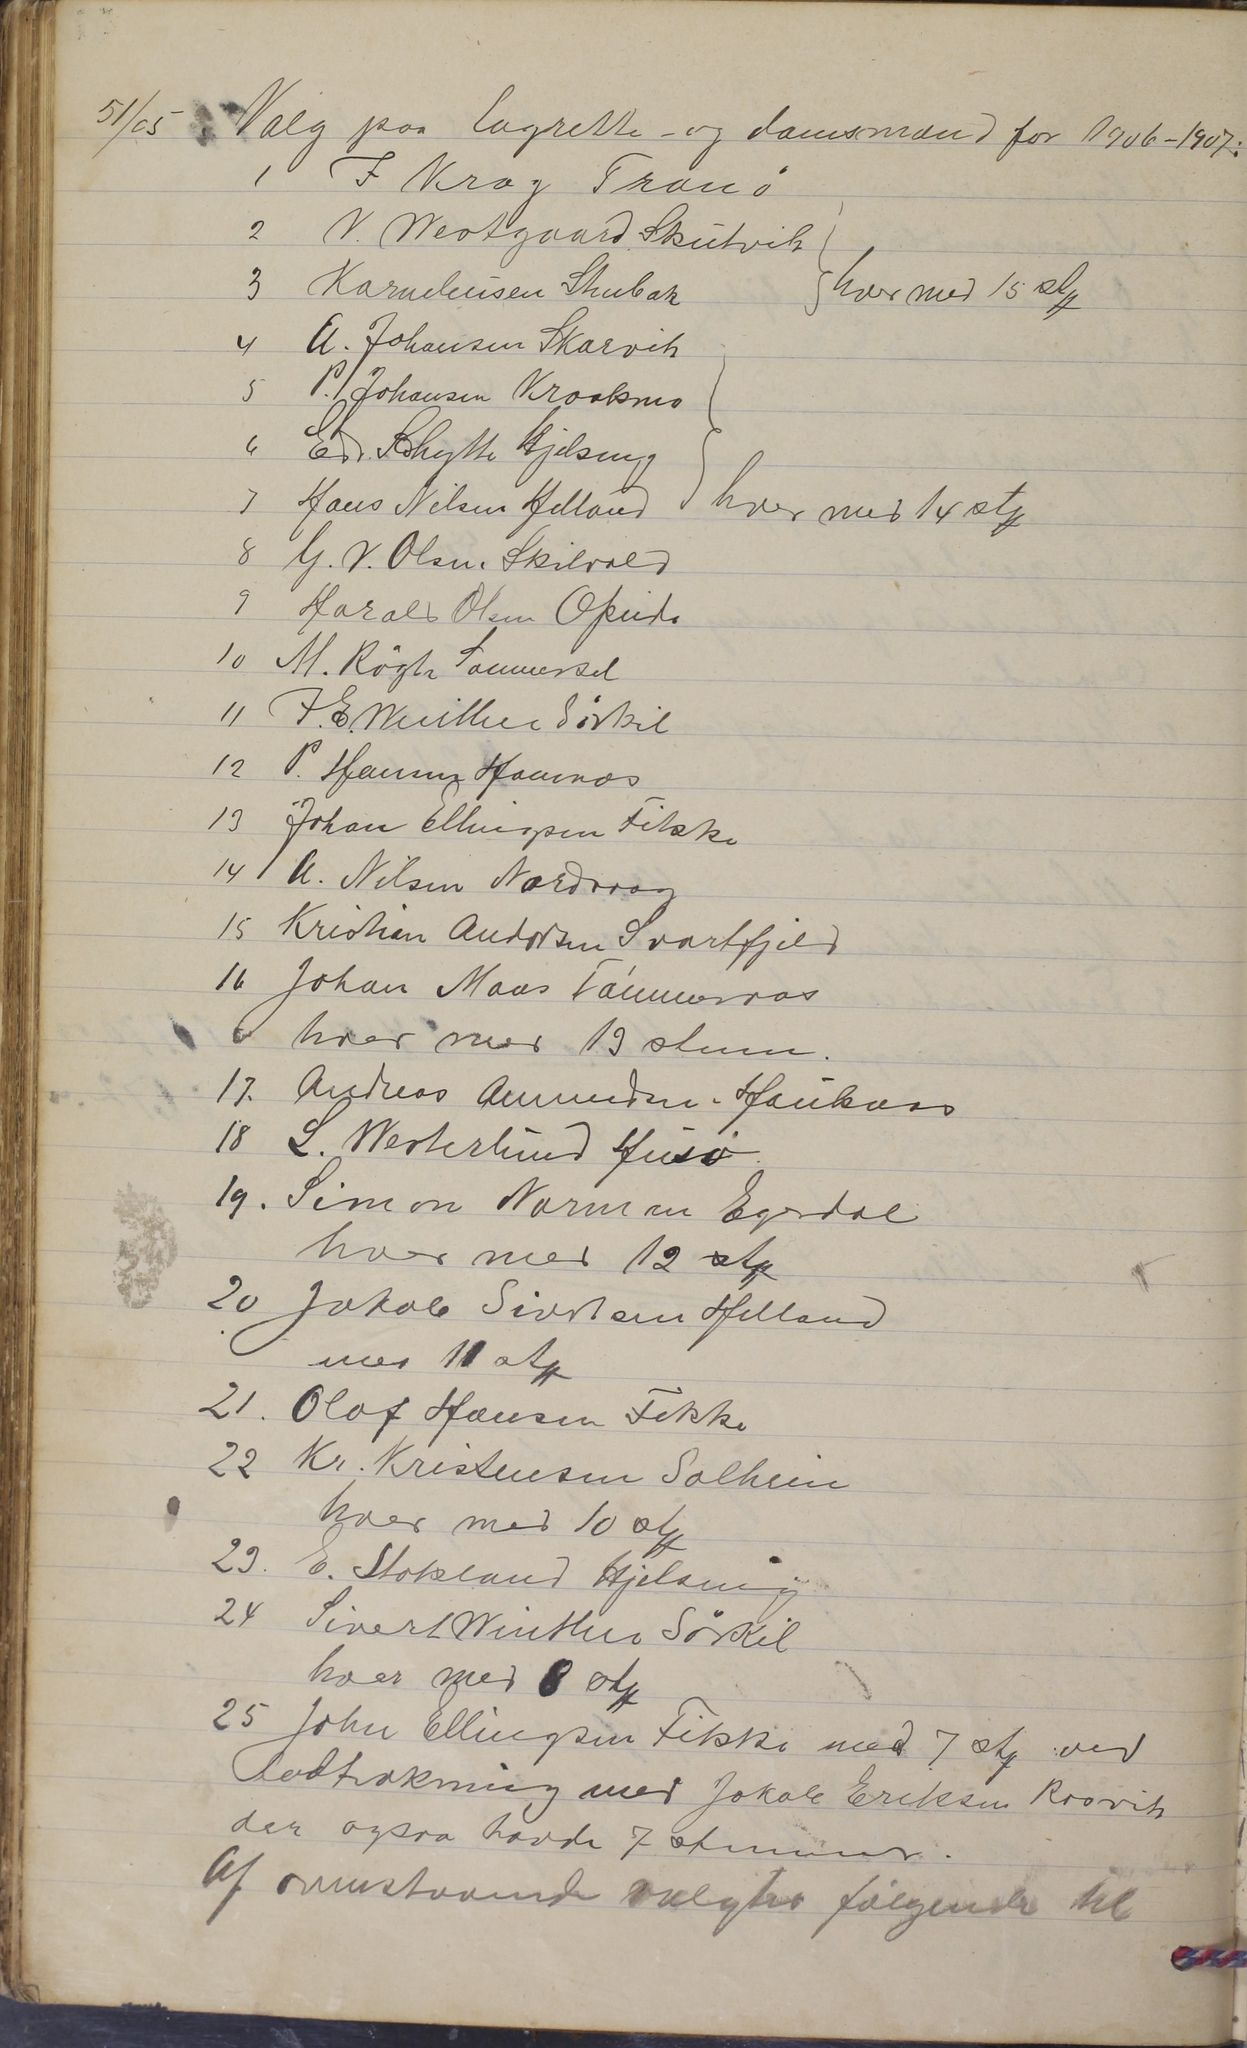 51/05 Valg paa lagrette- og domsmænd for 1906-1907:
1 F Krag Tranø
2 N. Westgaard Skutvik
3 Korneliusen Stubak } hver med 15 st
4 A. Johansen Skarvik
5 P. Johansen Kraakmo
6 Edv. Schytte Kjelsung
7 Hans Nilsen Helland } hver med 14 st
8 G. V. Olsen Skilvold
9 Harald Olsen Opeide
10 M. Rögh Sommersel
11 F. E. Winther Sörkil
12 P. Hansen Hamnæs
13 Johan Ellingsen Fikke
14 A. Nilsen Nordvaag
15 Kristian Andorsen Svartfjeld
16 Johan Maas Tömmeraas
hver med 13 stem.
17. Andreas Amundsen Haukaas
18 L. Westerlund Husö
19. Simon Norman Egerdal
hver med 12 st
20 Jakob Sivertsen Helland
med 11 st
21. Olaf Hansen Fikke
22 Kr. Kristensen Solheim
hver med 10 st
23. E. Stokland Kjelsung
24 Sivert Winther Sörkil
hver med 8 st
25 John Ellingsen Fikke med 7 st ved
Lodtrækning med Jakob Eriksen Rosvik
der ogsaa havde 7 stemmer.
Af ovenstaaende valgtes følgende til